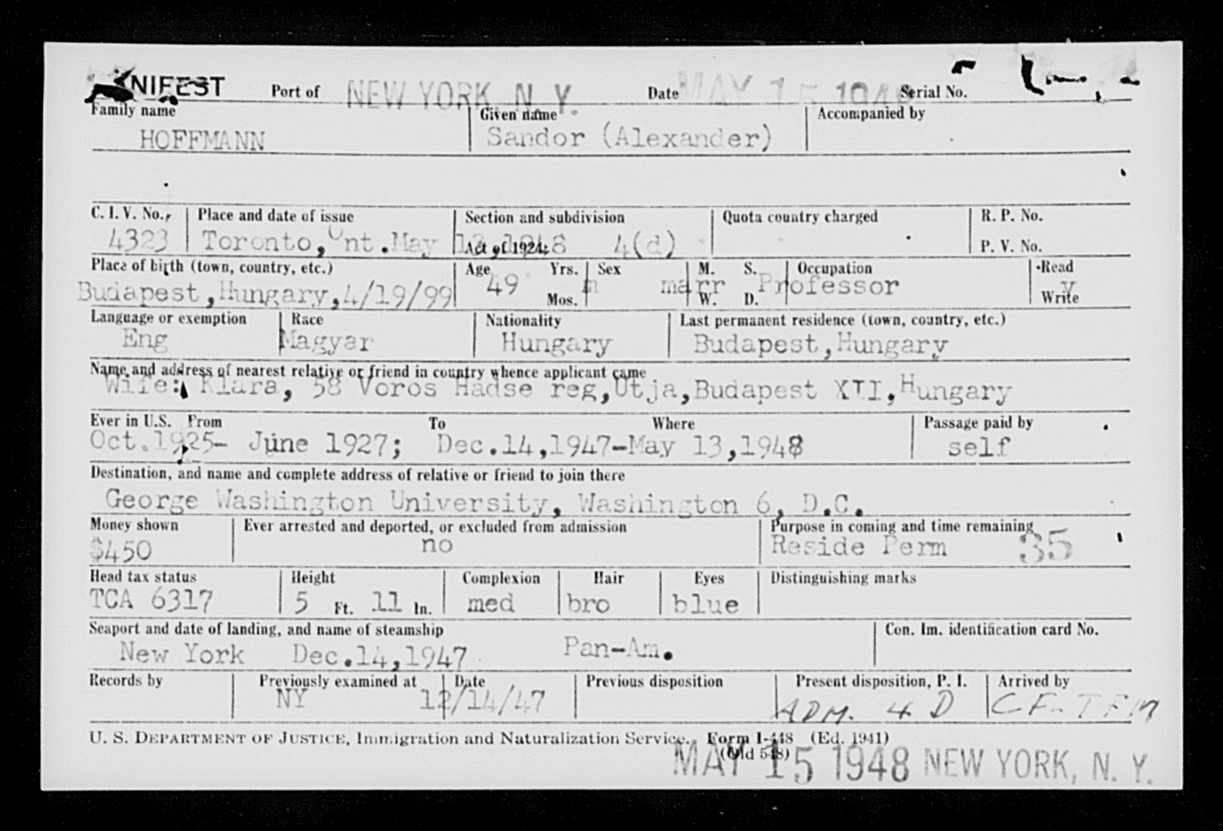 MANIFEST Port of NEW YORK N. Y. Date MAY 15 1948 Serial No.
Family name Given name Accompanied by
HOFFMANN Sandor (Alexander)
C. I. V. No. Place and date of issue Section and subdivision Quota country charged R. P. No.
4323 Toronto, Ont. May 13,1948 Act of 1924; 4(d) P. V. No.
Place of birth (town, country, etc.) Age Yrs. Sex M. S. Occupation Read
Budapest,Hungary,4/19/99 49 Mos. m marr W. D. Professor Write y
Language or exemption Race Nationality Last permanent residence (town, country, etc.)
Eng Magyar Hungary Budapest,Hungary
Name and address of nearest relative or friend in country whence applicant came
Wife: Klara, 58 Voros Hadse reg,Utja,Budapest XII,Hungary
Ever in U.S. From To Where Passage paid by
Oct.1925- June 1927; Dec.14,1947-May 13,1948 self
Destination, and name and complete address of relative or friend to join there
George Washington University, Washington 6, D.C.
Money shown Ever arrested and deported, or excluded from admission Purpose in coming and time remaining
$450 no Reside Perm 35
Head tax status Height Complexion Hair Eyes Distinguishing marks
TCA 6317 5 Ft. 11 In. med bro blue
Seaport and date of landing, and name of steamship Con. Im. identification card No.
New York Dec.14,1947 Pan-Am.
Records by Previously examined at Date Previous disposition Present disposition, P. I. Arrived by
NY 12/14/47 ADM. 4 D CF-TFM
U. S. DEPARTMENT OF JUSTICE, Immigration and Naturalization Service. Form I-448 (Ed. 1941)
(Old 548)
MAY 15 1948 NEW YORK, N. Y.